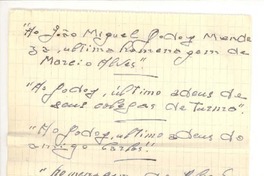 "Ao João Miguel Godoy Mende
zz, ultima homenagem de
Marcio Alves"
"Ao Godoy, ultimo adeus de
seus colegas de turma".
"Ao Godoy, ultimo adeus do
amigo Carlos".
"Homenagem de